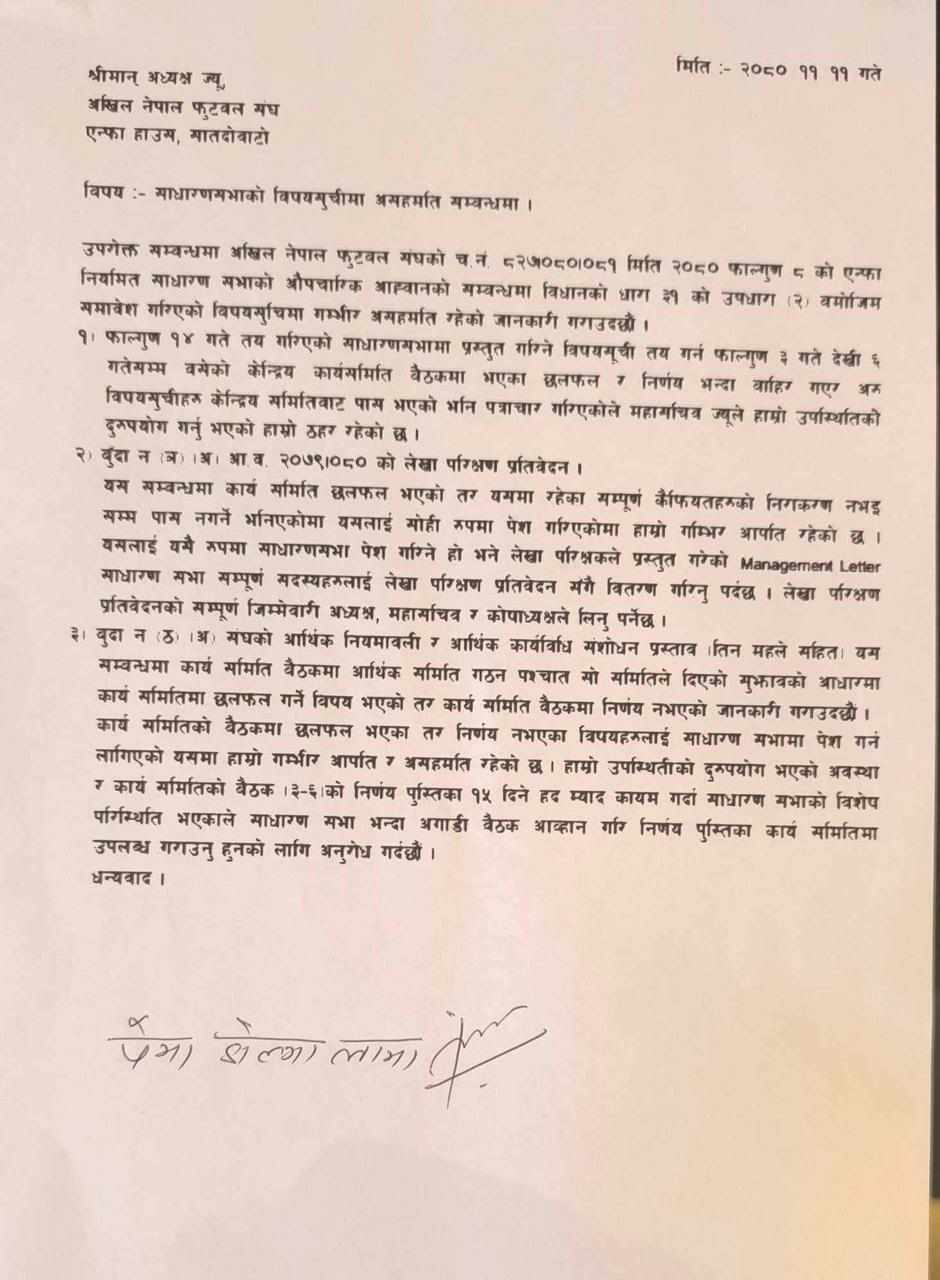 मिति :- २०८० ११ ११ गते
श्रीमान् अध्यक्ष ज्यू,
अखिल नेपाल फुटवल संघ
एन्फा हाउस, सातदोवाटो
विषय :- साधारणसभाको विषयसुचीमा असहमति सम्वन्धमा ।
उपरोक्त सम्वन्धमा अखिल नेपाल फुटवल संघको च.नं. ८२७।०८०।०८१ मिति २०८० फाल्गुण ८ को एन्फा
नियमित साधारण सभाको औपचारिक आह्वानको सम्वन्धमा विधानको धारा ३१ को उपधारा (२) वमोजिम
समावेश गरिएको विषयसुचिमा गम्भीर असहमति रहेको जानकारी गराउदछौं ।
१) फाल्गुण १४ गते तय गरिएको साधारणसभामा प्रस्तुत गरिने विषयसूची तय गर्न फाल्गुण ३ गते देखी ६
गतेसम्म वसेको केन्द्रिय कार्यसमिति वैठकमा भएका छलफल र निर्णय भन्दा वाहिर गएर अरु
विषयसुचीहरु केन्द्रिय समितिवाट पास भएको भनि पत्राचार गरिएकोले महासचिव ज्यूले हाम्रो उपस्थितिको
दुरुपयोग गर्नु भएको हाम्रो ठहर रहेको छ ।
२) वुँदा न (ञ) (अ) आ.व. २०७९।०८० को लेखा परिक्षण प्रतिवेदन ।
यस सम्वन्धमा कार्य समिति छलफल भएको तर यसमा रहेका सम्पूर्ण कैफियतहरुको निराकरण नभइ
सम्म पास नगर्ने भनिएकोमा यसलाई सोही रुपमा पेश गरिएकोमा हाम्रो गम्भिर आपति रहेको छ ।
यसलाई यसै रुपमा साधारणसभा पेश गरिने हो भने लेखा परिक्षकले प्रस्तुत गरेको Management Letter
साधारण सभा सम्पूर्ण सदस्यहरुलाई लेखा परिक्षण प्रतिवेदन संगै वितरण गरिनु पर्दछ । लेखा परिक्षण
प्रतिवेदनको सम्पूर्ण जिम्मेवारी अध्यक्ष, महासचिव र कोषाध्यक्षले लिनु पर्नेछ ।
३) वुदा न (ठ) (अ) संघको आर्थिक नियमावली र आर्थिक कार्यविधि संशोधन प्रस्ताव (तिन महले सहित) यस
सम्वन्धमा कार्य समिति वैठकमा आर्थिक समिति गठन पश्चात सो समितिले दिएको सुझावको आधारमा
कार्य समितिमा छलफल गर्ने विषय भएको तर कार्य समिति वैठकमा निर्णय नभएको जानकारी गराउदछौं ।
कार्य समितिको वैठकमा छलफल भएका तर निर्णय नभएका विषयहरुलाई साधारण सभामा पेश गर्न
लागिएको यसमा हाम्रो गम्भीर आपति र असहमति रहेको छ । हाम्रो उपस्थितीको दुरुपयोग भएको अवस्था
र कार्य समितिको वैठक (३-६)को निर्णय पुस्तिका १५ दिने हद म्याद कायम गर्दा साधारण सभाको विशेष
परिस्थिति भएकाले साधारण सभा भन्दा अगाडी वैठक आव्हान गरि निर्णय पुस्तिका कार्य समितिमा
उपलब्ध गराउनु हुनको लागि अनुरोध गर्दछौं ।
धन्यवाद ।
पेमा डोल्मा लामा